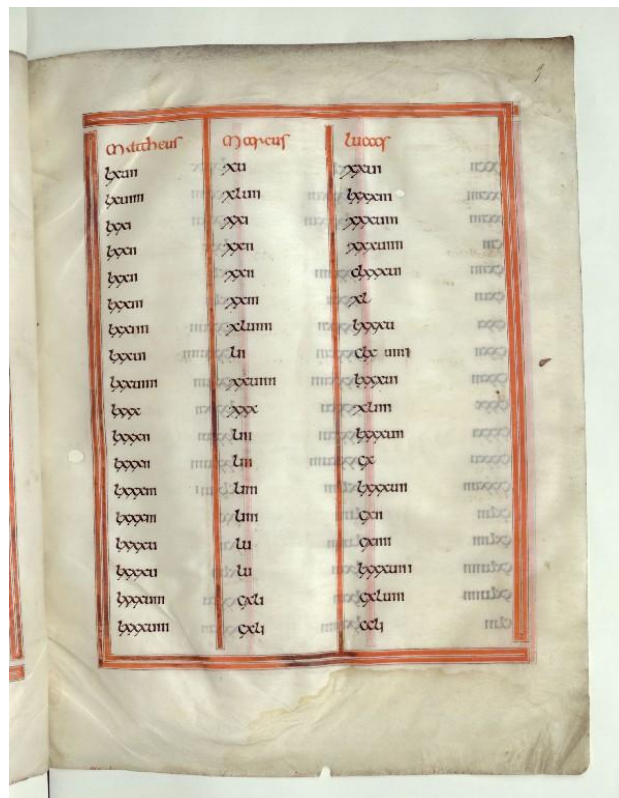 9
Mattheus Marcus Lucas
lxuii xu xxui
lxuiiii xluii lxxxiii
lxxi xxi xxxuiii
lxxii xxii xxxuiiii
lxxii xxii clxxxui
lxxiii xxiii xl
lxxiiii xluiiii lxxxu
lxxui lii clx uiiii
lxxuiiii xxuiiii lxxxui
lxxx xxx xliiii
lxxxii liii lxxxuii
lxxxii liii cx
lxxxiii liiii lxxxuii
lxxxiii liiii cxii
lxxxu lu cxiiii
lxxxu lu lxxxuiii
lxxxuiii cxli cxluiii
lxxxuiii cxli ccli